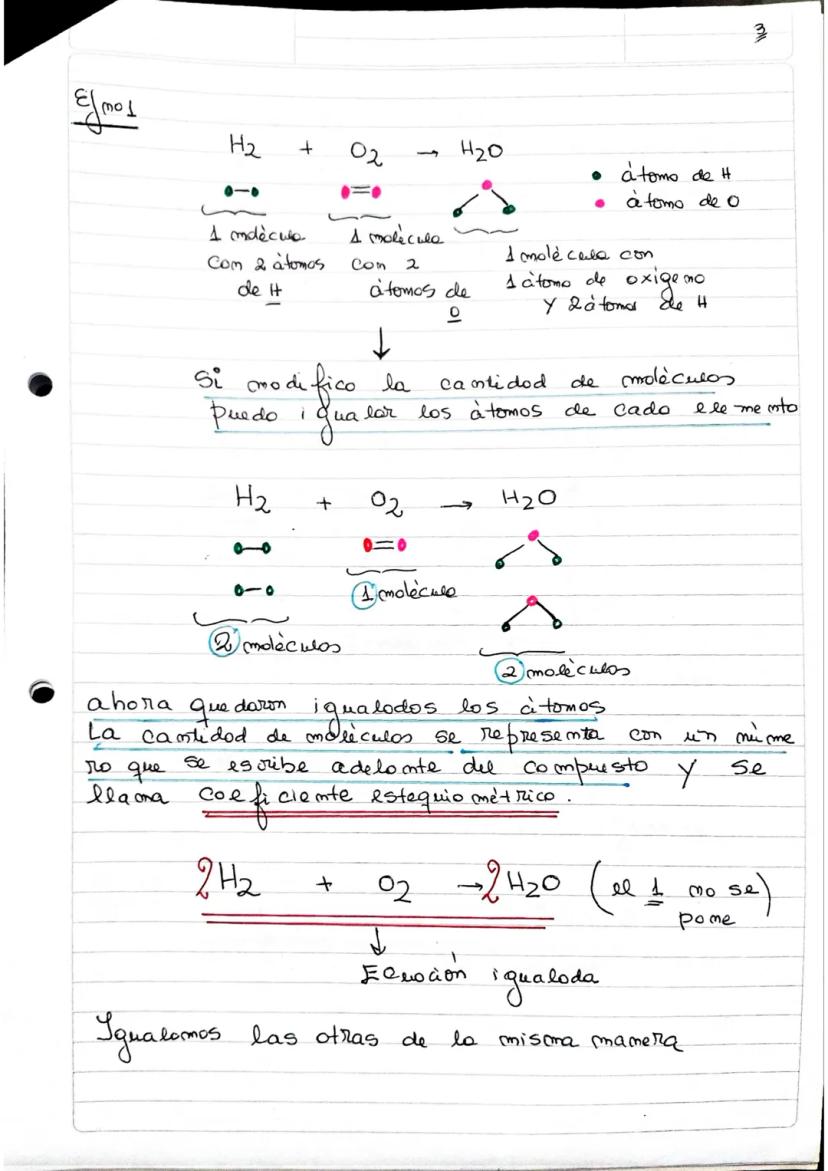 3
Ej no1
H2 + O2 → H2O
• átomo de H
• átomo de O
1 molécula
con 2 átomos
de H
1 molécula
con 2
átomos de
O
1 molécula con
1 átomo de oxígeno
y 2 átomos de H
↓
Si modifico la cantidad de moléculas
puedo igualar los átomos de cada elemento
H2 + O2 → H2O
1 molécula
2 moléculas
2 moléculas
ahora quedaron igualados los átomos
La cantidad de moléculas se representa con un núme
ro que se escribe adelante del compuesto y se
llama coeficiente estequiométrico.
2H2 + O2 → 2H2O (el 1 no se
pone)
↓
Ecuación igualada
Igualamos las otras de la misma manera